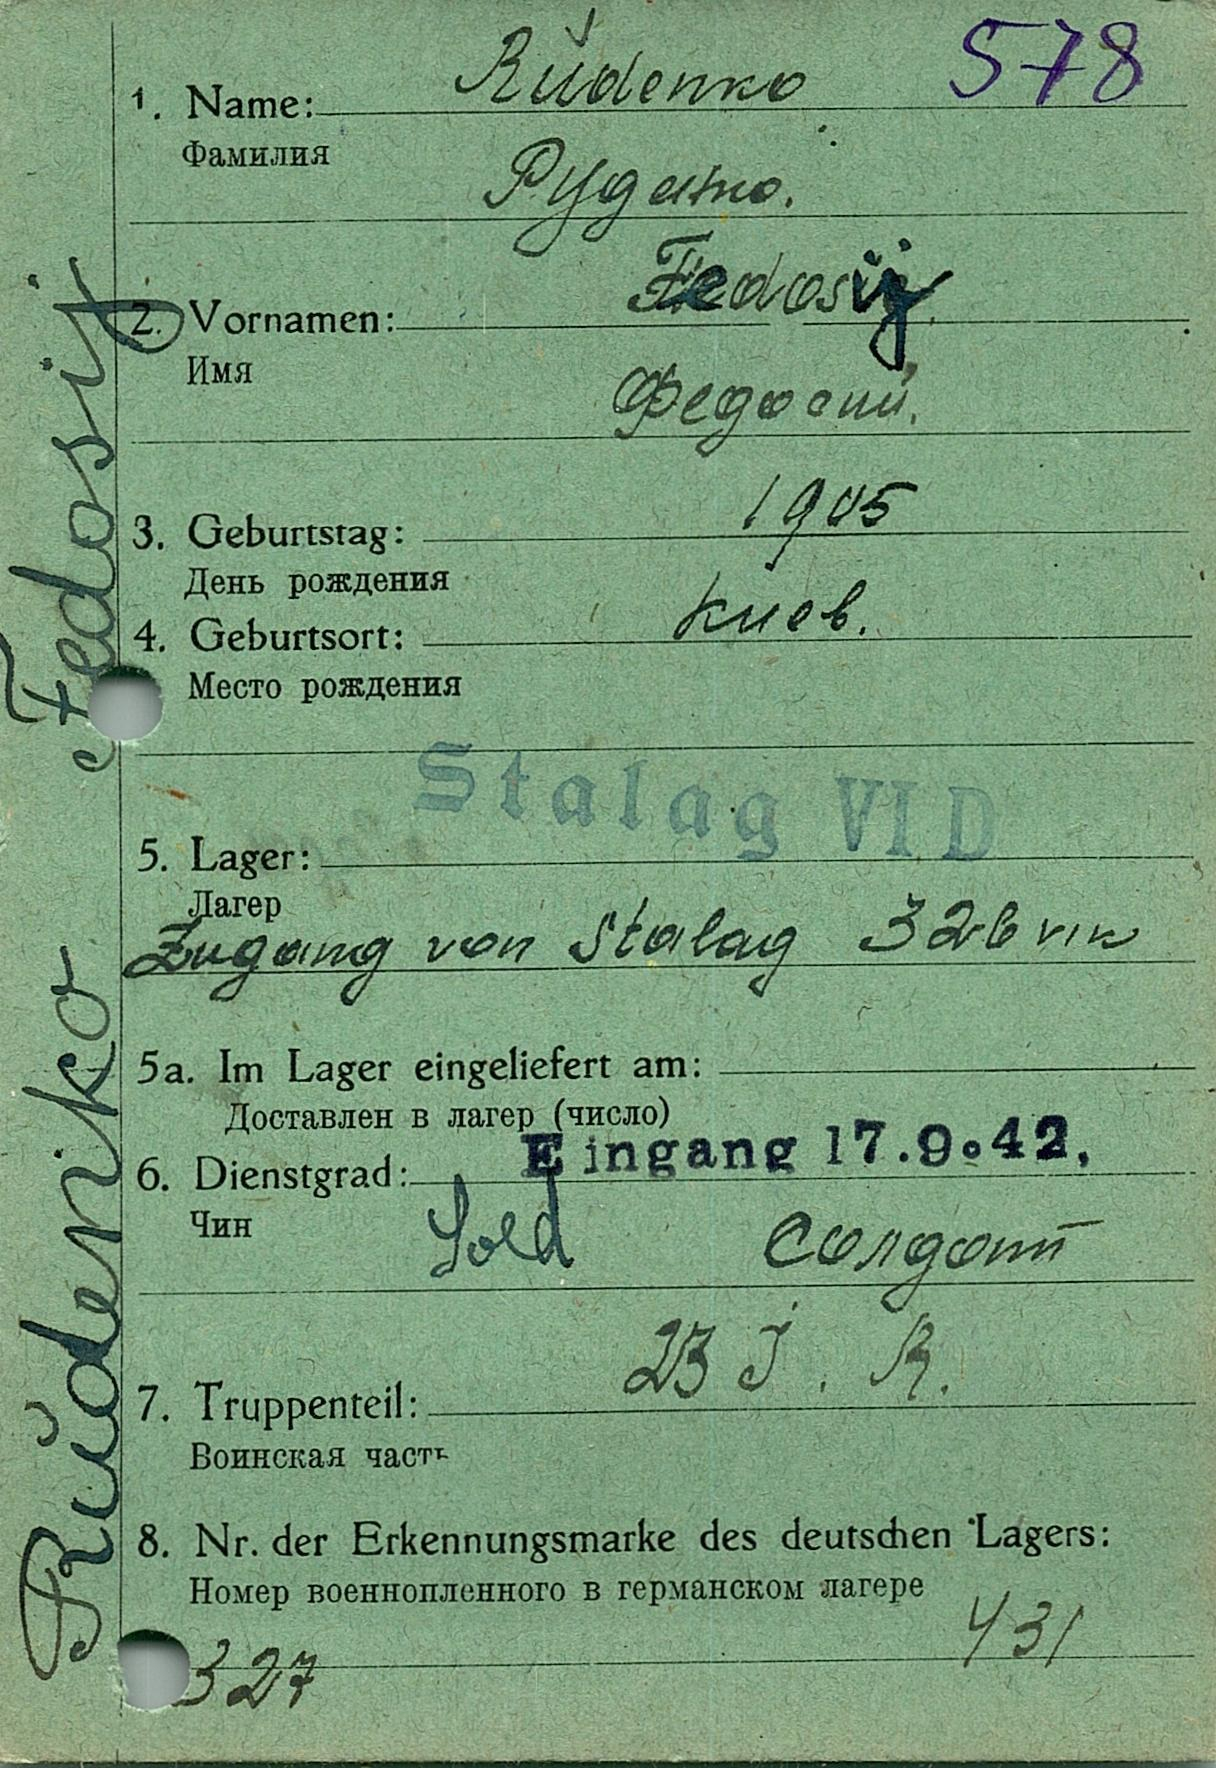 578
1. Name: Rŭdenko
Фамилия
Руденко.
2. Vornamen: Fedosij
Имя
Федосий.
3. Geburtstag: 1905
День рождения
4. Geburtsort: Киев.
Место рождения
Stalag VI D
5. Lager:
Лагер
Zugang von Stalag 326 VI K
5a. Im Lager eingeliefert am:
Доставлен в лагер (число)
Eingang 17.9.42.
6. Dienstgrad:
Чин
Sold Солдат
23 I. R.
7. Truppenteil:
Воинская часть
8. Nr. der Erkennungsmarke des deutschen Lagers:
Номер военнопленного в германском лагере
431
327
Rŭdenko Fedosij